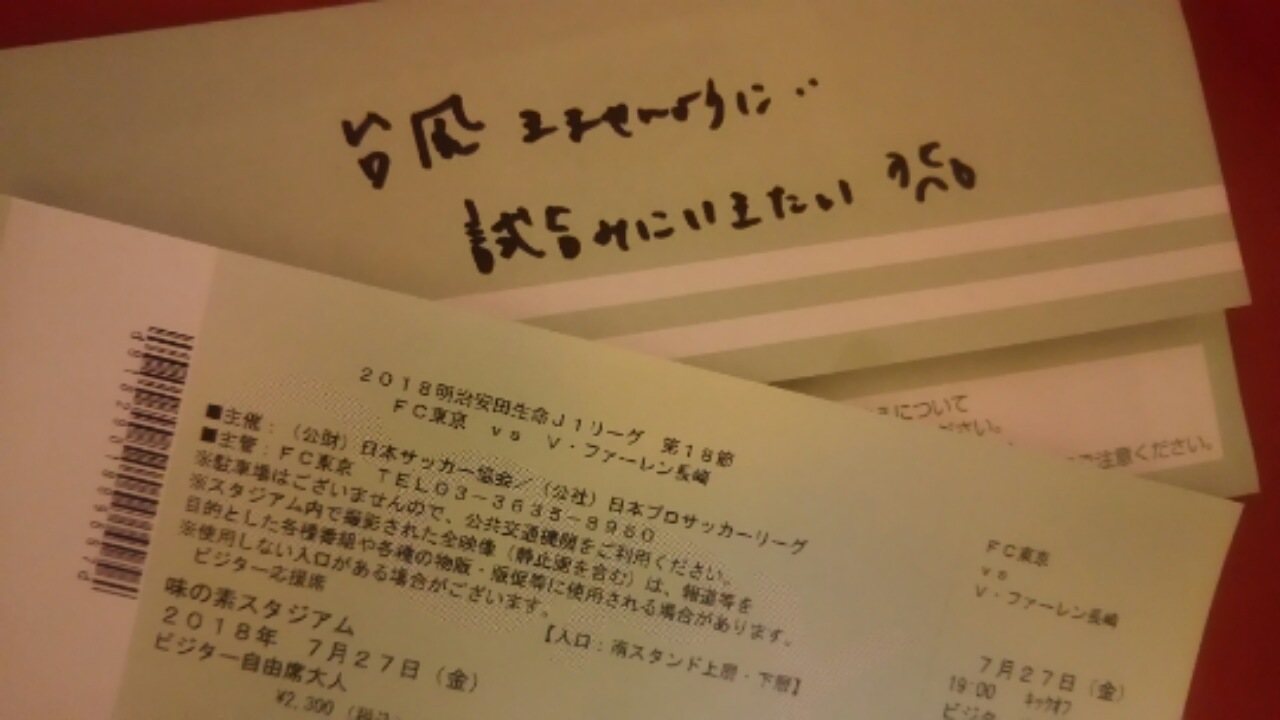 台風きませんように‥
試合みにいきたい
について
ださい。
ご注意ください。
2018明治安田生命J1リーグ 第18節
FC東京 vs V・ファーレン長崎
■主催：（公財）日本サッカー協会／（公社）日本プロサッカーリーグ
■主管：FC東京 TEL03-3635-8950
※駐車場はございませんので、公共交通機関をご利用ください。
※スタジアム内で撮影された全映像（静止画を含む）は、報道等を
目的とした各種番組や各種の物販・販促等に使用される場合があります。
※使用しない入口がある場合がございます。
ビジター応援席
【入口：南スタンド上層・下層】
味の素スタジアム
2018年 7月27日（金）
ビジター自由席大人
¥2,300
FC東京
vs
V・ファーレン長崎
7月27日（金）
19:00 ｷｯｸｵﾌ
ビジタ